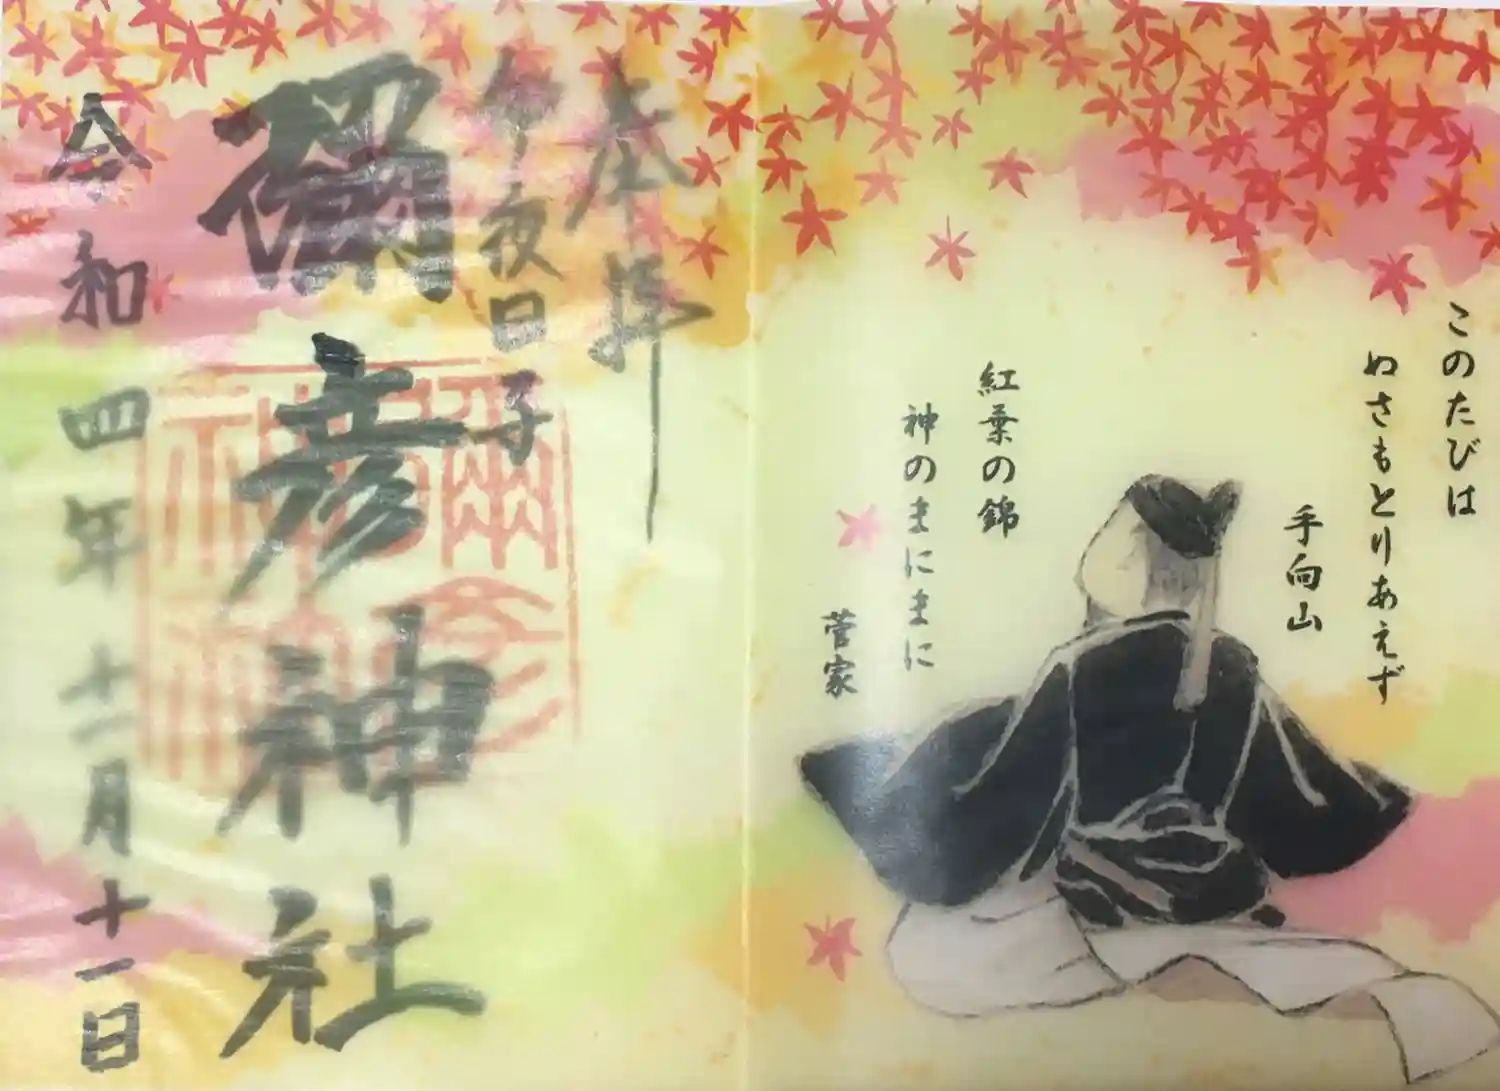 このたびは
ぬさもとりあえず
手向山
紅葉の錦
神のまにまに
菅家
奉拝
卯夜日子
彌彦神社
令和四年十一月十一日